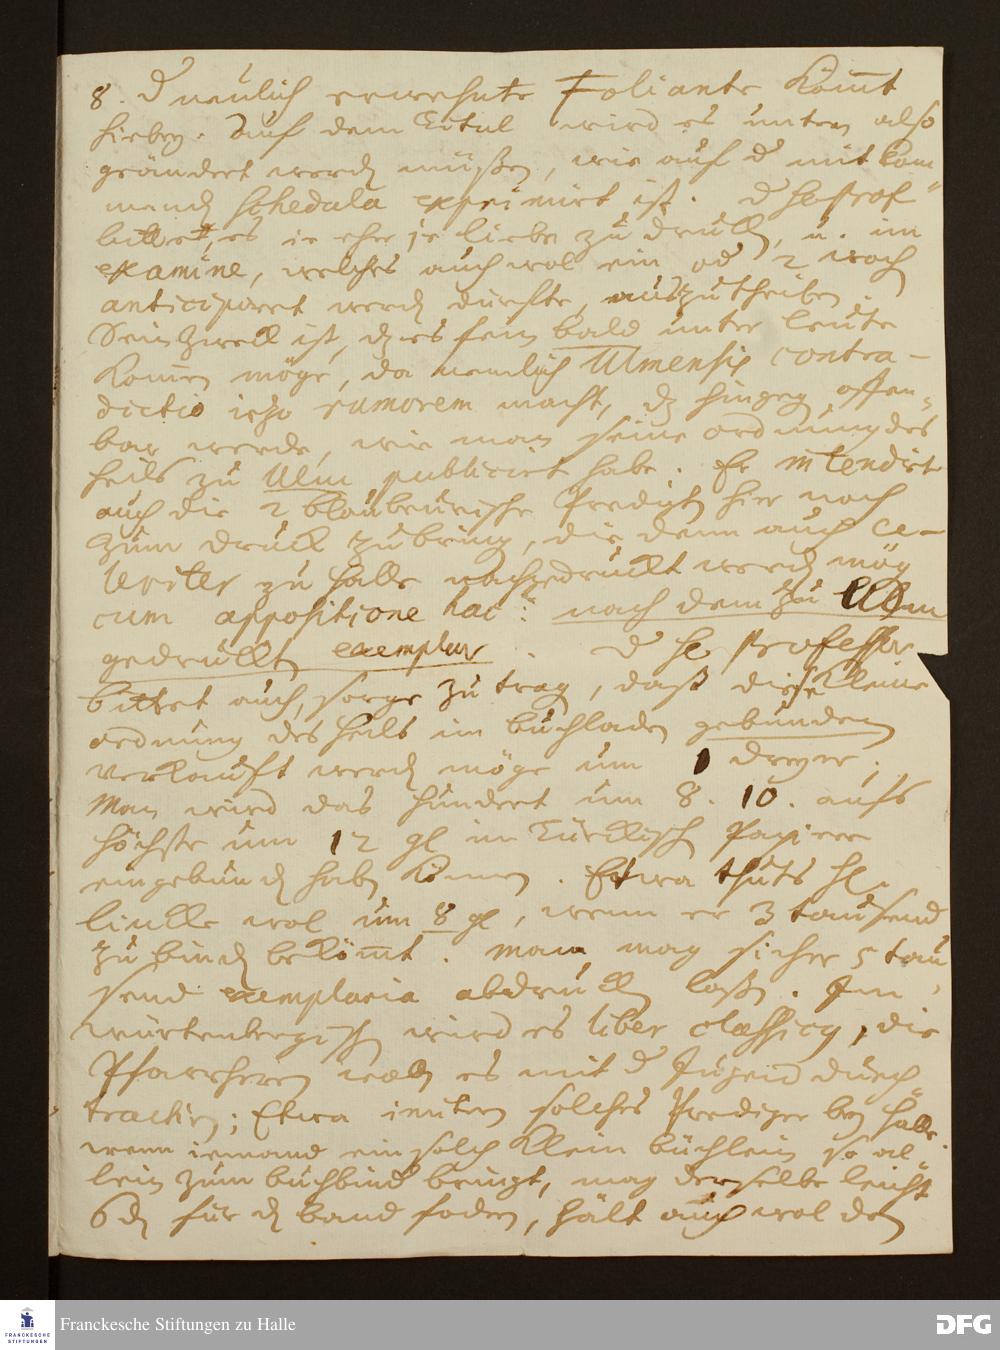 8. d neulich erwehnte Foliante kömt
hiebey. Auf dem Titul wird es unten also
geändert werdn müßen, wie auf d mit kom-
mendn schedula exprimirt ist. d H Prof
bittet, es ie eher je lieber zu druckn, u. im
examine, welches auch wol ein od 2 woch
anticipiret werdn dürffte, auszutheilen.
Sein Zweck ist, dz es fein bald unter leute
kommen möge, da nemlich Ulmensis contra-
dictio iezo rumorem macht, dz hingegn offen-
bar werde, wie man seine ordnung des
heils zu Ulm publicirt habe. Er intendirt
auch die 2 blaubeurische Predigtn hier noch
zum druck zu bringn, die denn auch ce-
leriter zu Halle nachgedruckt werdn mögn
cum appositione hac: nach dem zu Ulm
gedruckten exemplar. d H Professor
bittet auch, sorge zu tragn, daß diese kleine
ordnung des heils im buchladen gebunden
verkaufft werdn möge um 1 dreyer;
Man wird das hundert um 8. 10. aufs
höchste um 12 gl in Türckisch Papier
eingebundn haben können. Etwa thuts H
lincke wol um 8 gl, wenn er 3 tausend
zu bindn bekömt. Man mag sicher 5 tau-
send exemplaria abdruckn laßn. Im
würtenbergisch wird es liber classicus, die
Pfarrherrn wolln es mit d Jugend durch
tractirn; Etwa imitirn solches Prediger bey Halle.
wenn iemand ein solch klein büchlein so al-
lein zum buchbindr bringt, mag derselbe leicht
6 d für dn band fodern, hält auch wol den
Franckesche Stiftungen zu Halle
DFG
FRANCKESCHE
STIFTUNGEN